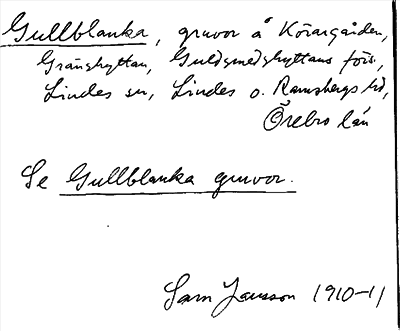 Gullblanka, gruvor å Körargården,
Gränshyttan, Guldsmedshyttans förs.,
Lindes sn, Lindes o. Ramsbergs hd,
Örebro län
Se Gullblanka gruvor.
Sam Jansson 1910-11